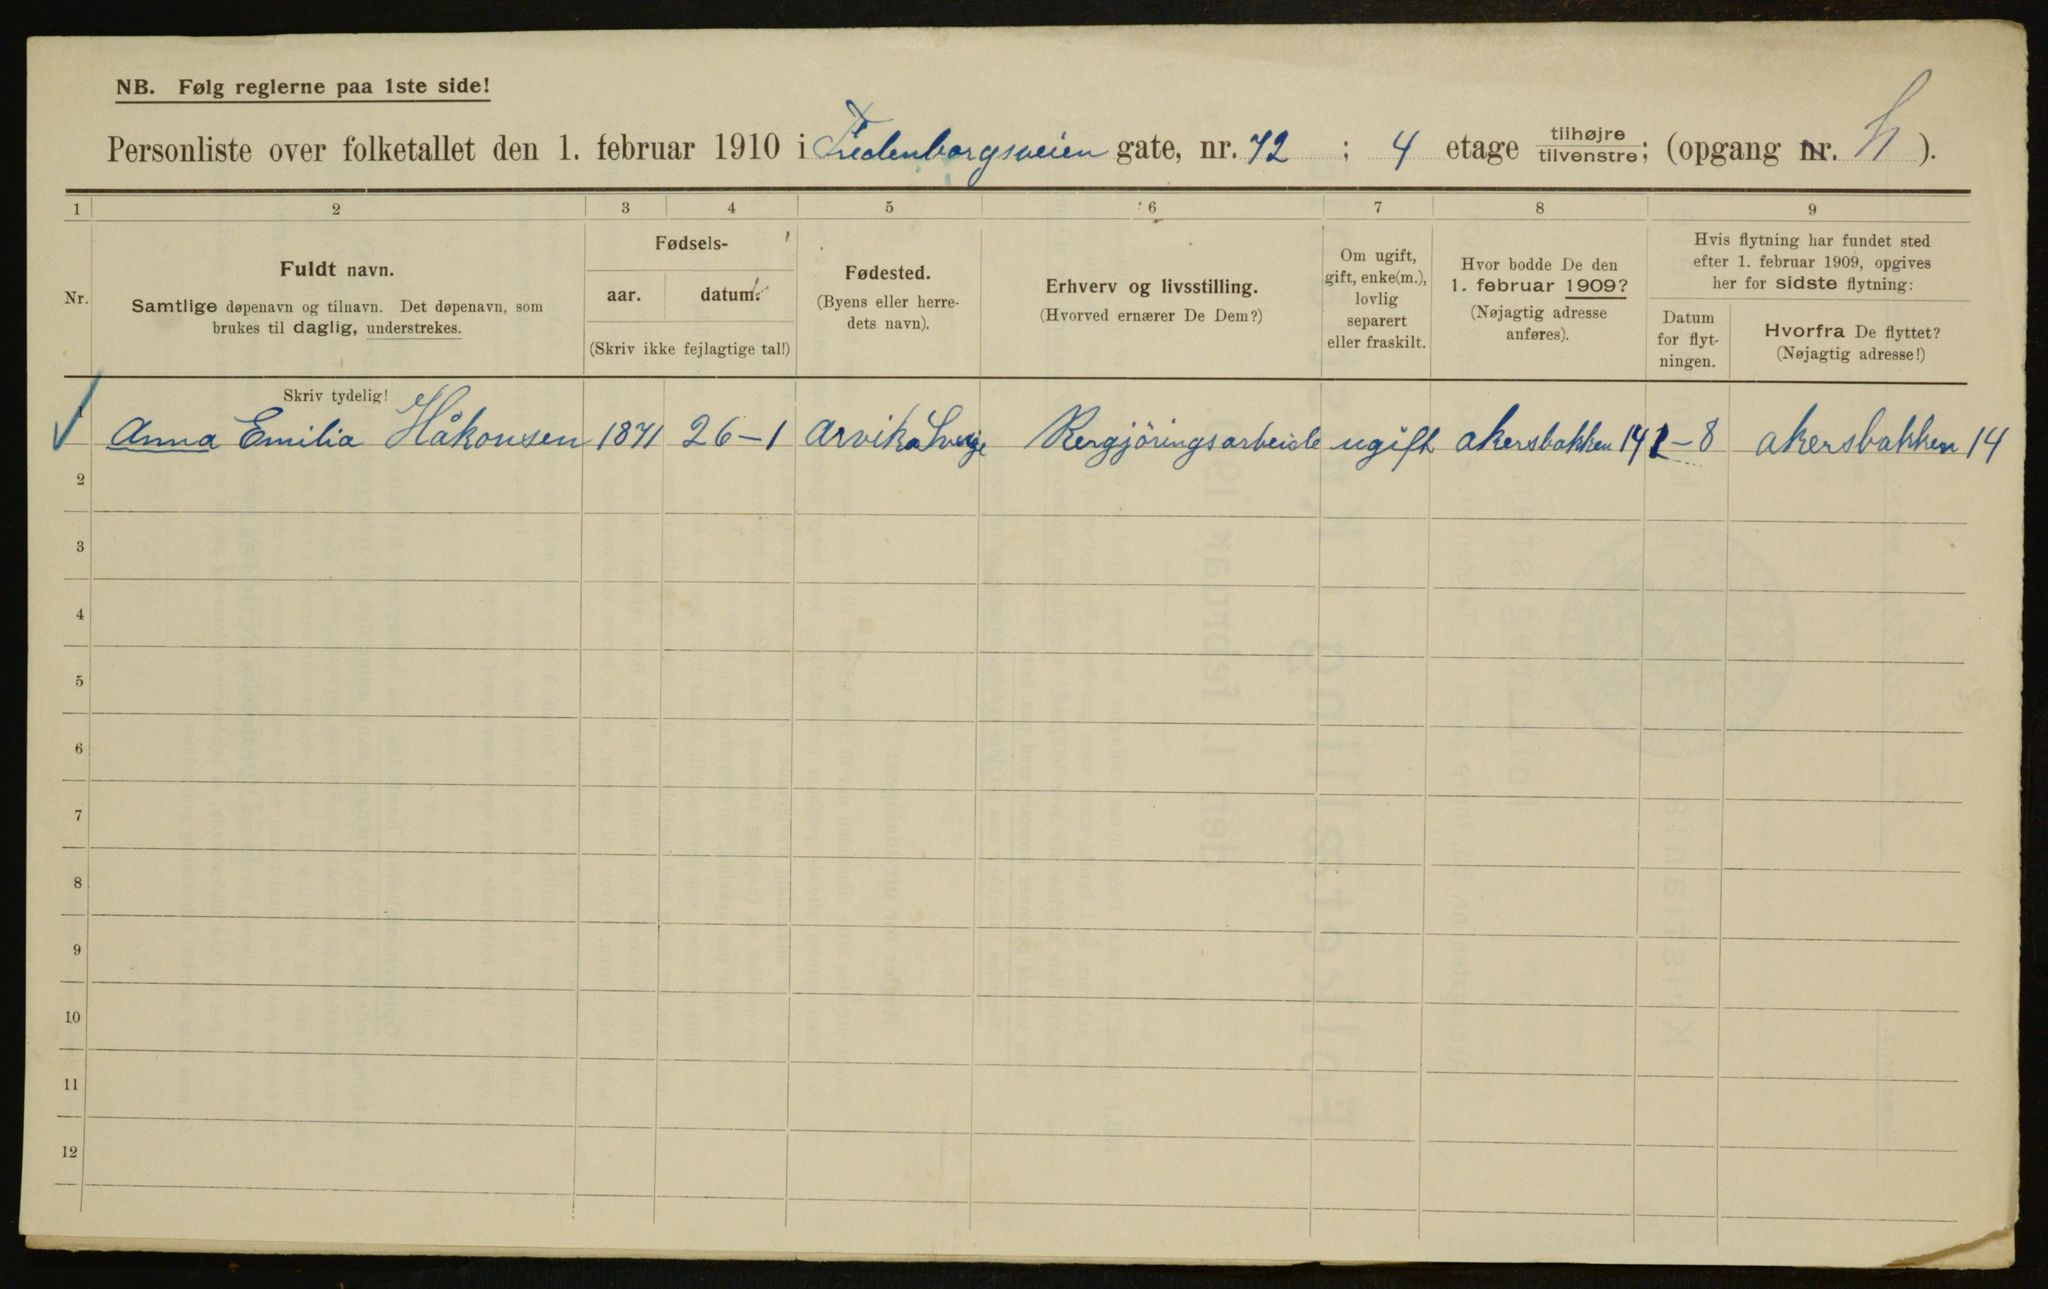 NB. Følg reglerne paa 1ste side!
Personliste over folketallet den 1. februar 1910 i Fredenborgsveien gate, nr. 72 ; 4 etage tilhøjre tilvenstre; (opgang nr. h ).
1 2 3 4 5 6 7 8 9
Nr.
Fuldt navn.
Samtlige døpenavn og tilnavn. Det døpenavn, som
brukes til daglig, understrekes.
Fødsels-
aar. datum.
(Skriv ikke fejlagtige tal!)
Fødested.
(Byens eller herre-
dets navn).
Erhverv og livsstilling.
(Hvorved ernærer De Dem?)
Om ugift,
gift, enke(m.),
lovlig
separert
eller fraskilt.
Hvor bodde De den
1. februar 1909?
(Nøjagtig adresse
anføres).
Hvis flytning har fundet sted
efter 1. februar 1909, opgives
her for sidste flytning:
Datum
for flyt-
ningen.
Hvorfra De flyttet?
(Nøjagtig adresse!)
Skriv tydelig!
1 Anna Emilia Håkonsen 1871 26-1 Arvika Sverige Rengjöringsarbeide ugift Akersbakken 14 1-8 Akersbakken 14
2
3
4
5
6
7
8
9
10
11
12